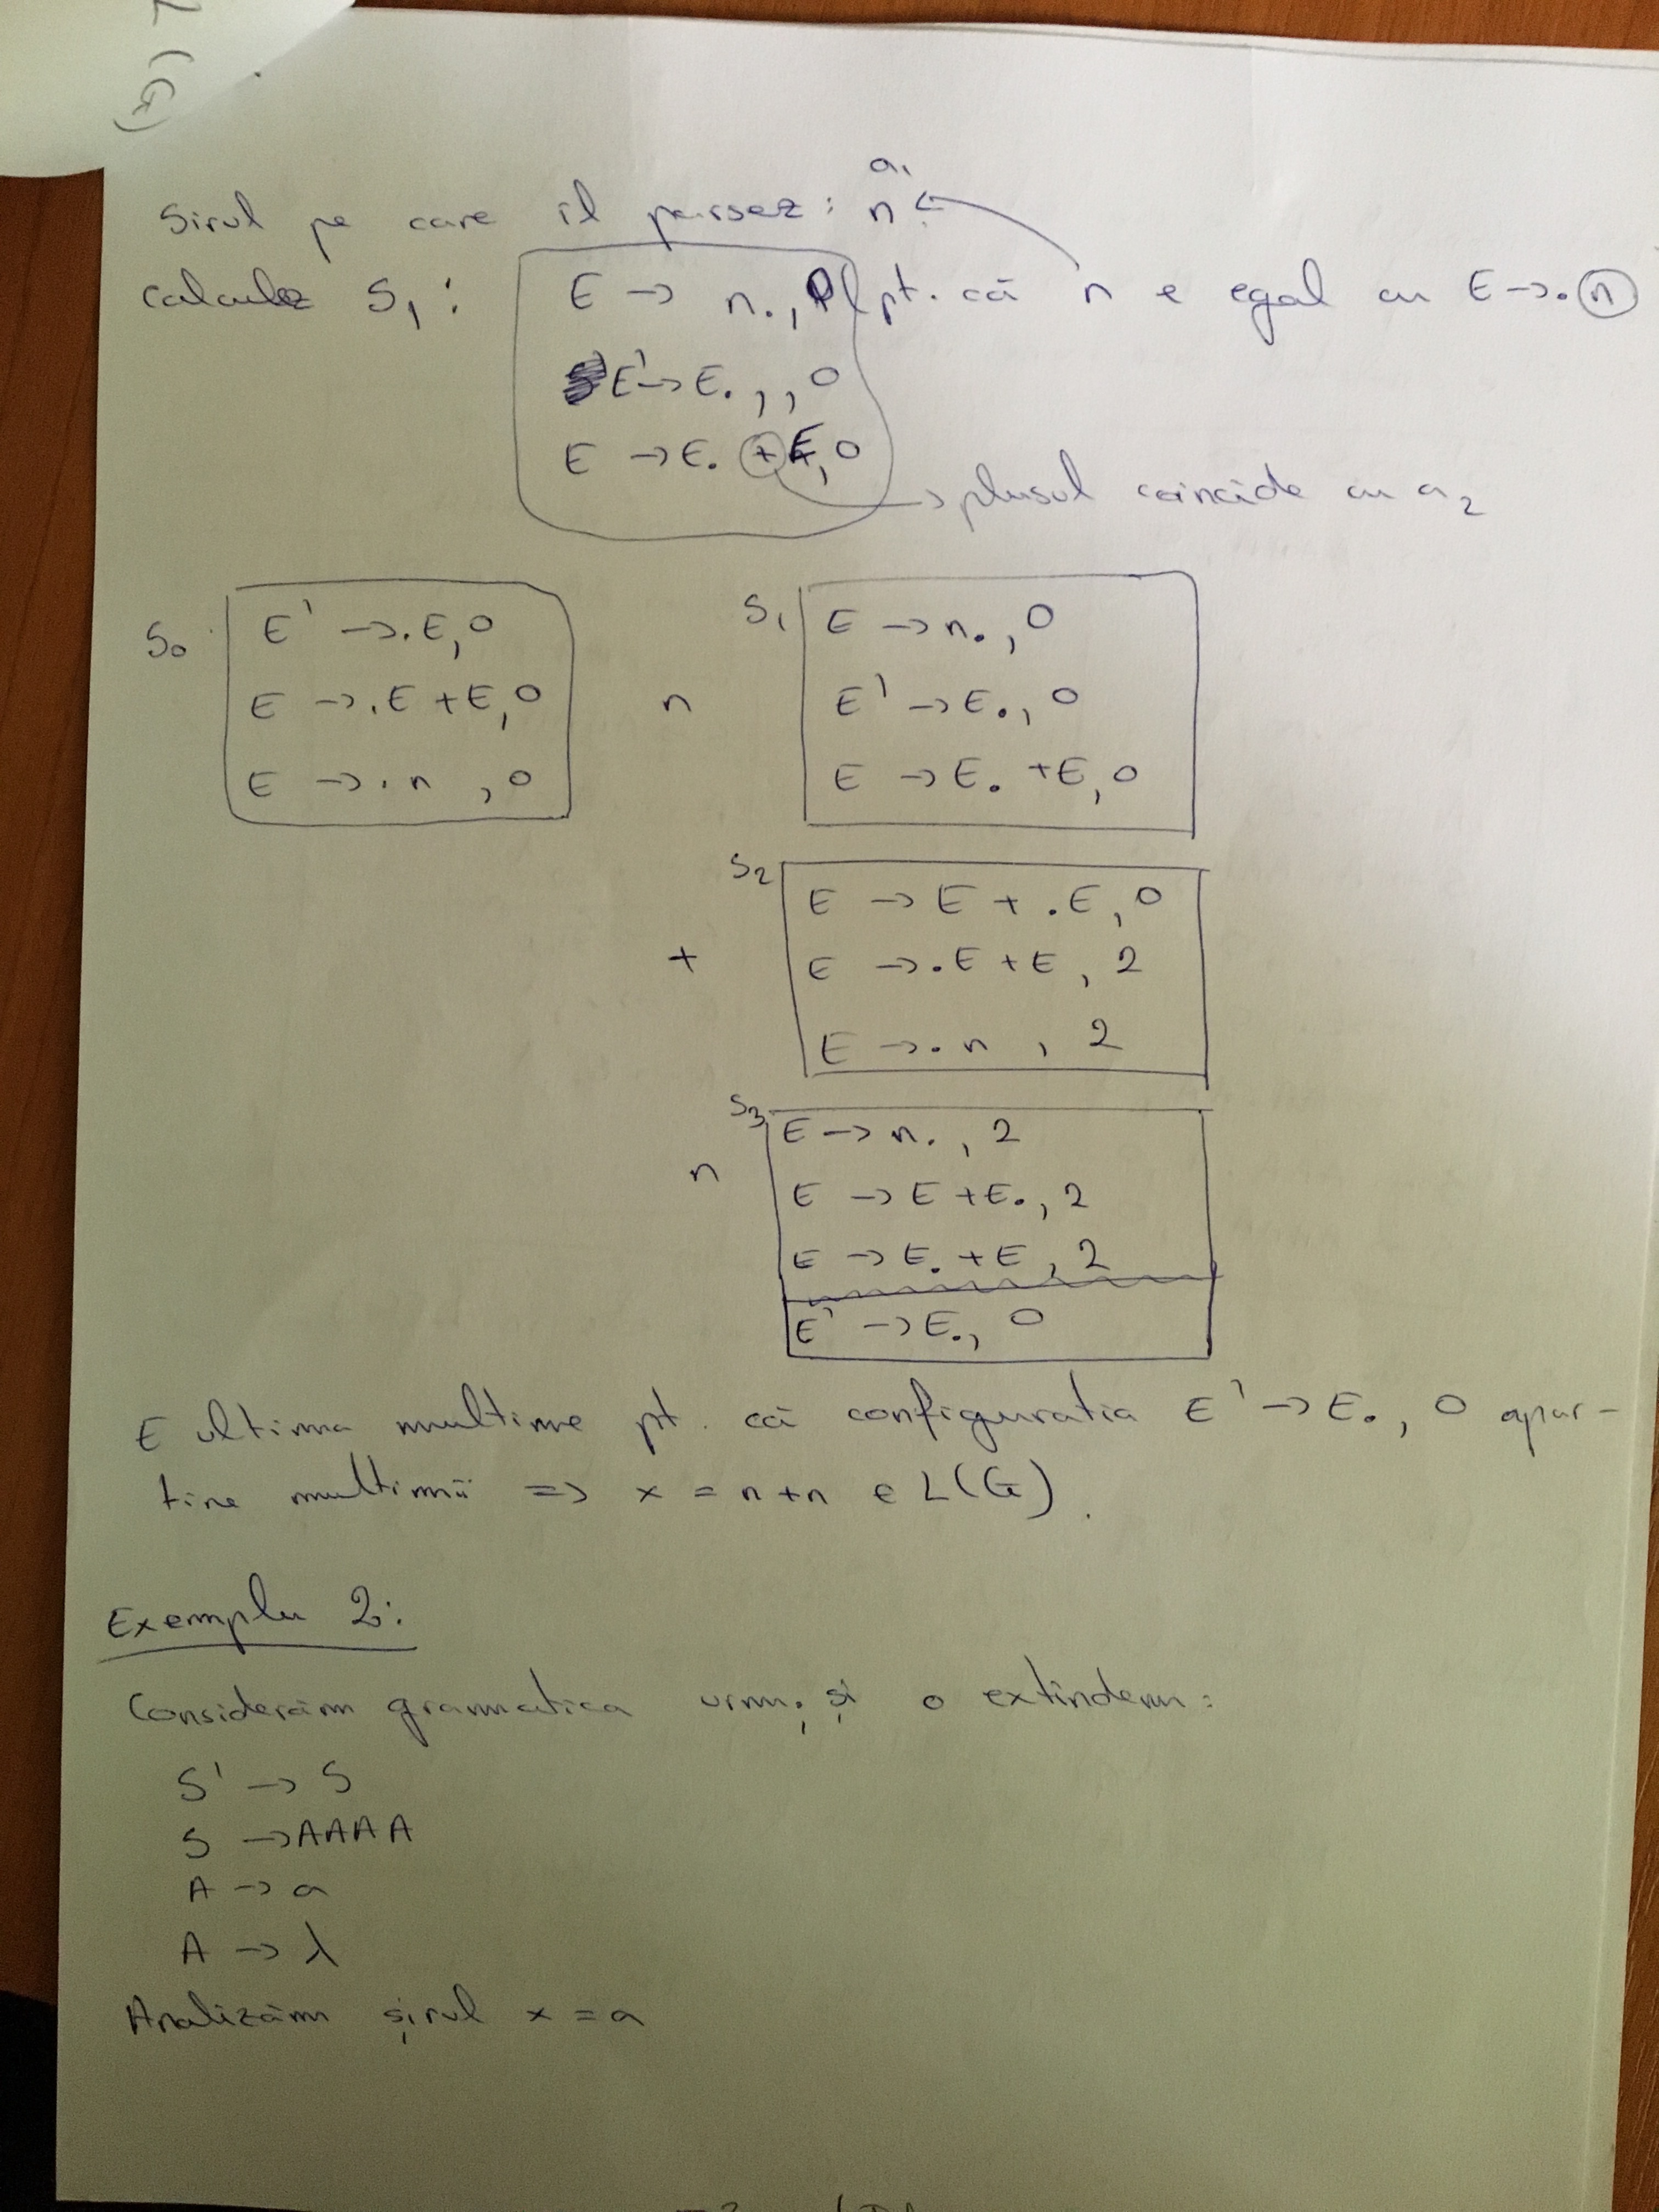 L(G)
a₁
Sirul pe care il parsez: n
calculez S₁:
E → n., 0 pt. că n e egal cu E → .n
E' → E., , 0
E → E. +E, 0
→ plusul coincide cu a₂
S₀
E' → .E, 0
E → .E +E, 0
E → .n , 0
n
S₁
E → n., 0
E' → E., 0
E → E. +E, 0
+
S₂
E → E + .E, 0
E → .E +E , 2
E → .n , 2
n
S₃
E → n. , 2
E → E +E., 2
E → E. +E , 2
E' → E., 0
E ultima multime pt. că configuratia E' → E., 0 apar-
tine multimii => x = n+n ∈ L(G).
Exemplu 2:
Considerăm gramatica urm. și o extindem:
S' → S
S → AAAA
A → a
A → λ
Analizăm șirul x = a